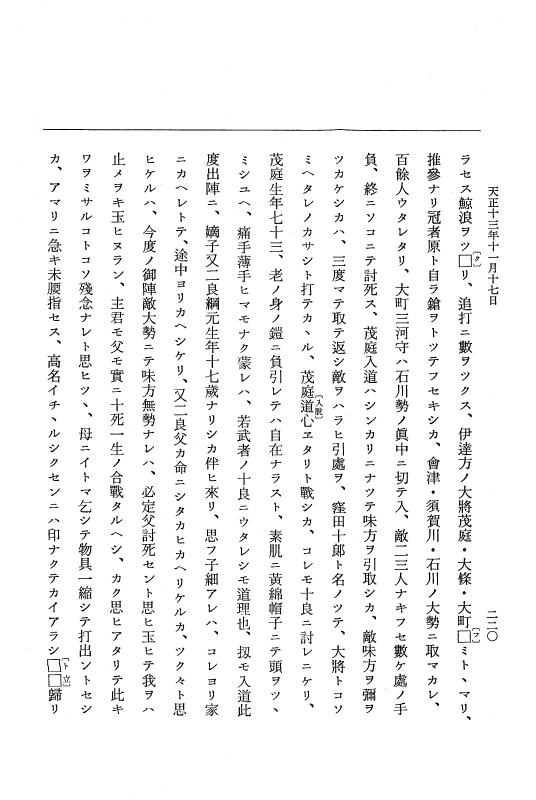 天正十三年十一月十七日
二二〇
ラセス鯨浪ヲツ□〔ク〕リ、追打ニ數ヲツクス、伊達方ノ大將茂庭・大條・大町□〔フ〕ミトヽマリ、
推參ナリ冠者原ト自ラ鎗ヲトツテフセキシカ、會津・須賀川・石川ノ大勢ニ取マカレ、
百餘人ウタレタリ、大町三河守ハ石川勢ノ眞中ニ切テ入、敵二三人ナキフセ數ケ處ノ手
負、終ニソコニテ討死ス、茂庭入道ハシンカリニナツテ味方ヲ引取シカ、敵味方ヲ彌ヲ
ツカケシカハ、三度マテ取テ返シ敵ヲハラヒ引處ヲ、窪田十郞ト名ノツテ、大將トコソ
ミヘタレノカサシト打テカヽル、茂庭道心〔入脫〕ヱタリト戰シカ、コレモ十良ニ討レニケリ、
茂庭生年七十三、老ノ身ノ鎧ニ負引レテハ自在ナラスト、素肌ニ黃綿帽子ニテ頭ヲツヽ
ミシユヘ、痛手薄手ヒマモナク蒙レハ、若武者ノ十良ニウタレシモ道理也、扨モ入道此
度出陣ニ、嫡子又二良綱元生年十七歲ナリシカ伴ヒ來リ、思フ子細アレハ、コレヨリ家
ニカヘレトテ、途中ヨリカヘシケリ、又二良父カ命ニシタカヒカヘリケルカ、ツク々ト思
ヒケルハ、今度ノ御陣敵大勢ニテ味方無勢ナレハ、必定父討死セント思ヒ玉ヒテ我ヲハ
止メヲキ玉ヒヌラン、主君モ父モ實ニ十死一生ノ合戰タルヘシ、カク思ヒアタリテ此キ
ワヲミサルコトコソ殘念ナレト思ヒツヽ、母ニイトマ乞シテ物具一縮シテ打出ントセシ
カ、アマリニ急キ未腰指セス、高名イチヽルシクセンニハ印ナクテカイアラシ□□〔ト立〕歸リ